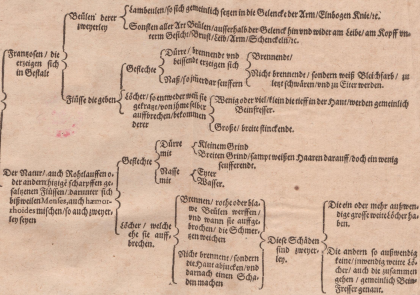 Lambeulen/so sich gemeinlich setzen in die Gelencke der Arm/Einbogen Knie/ꝛc.
Beulen derer
zweyerley
Sonsten aller Art Beulen/ausserhalb der Gelenck hin und wider am Leibe/am Kopff vn-
term Gesicht/Brust/Leib/Arm/Schenckeln/ꝛc.
Frantzosen / die
erzeigen sich
in Gestalt
Flüsse die geben
Geflechte
Dürre / brennende vnd
beissende erzeigen sich
Brennende/
Nicht brennende/ sondern weiß Bleichfarb/ zu
letzt schwären/vnd zu Eiter werden.
Naß/so jmmerdar senffern
Löcher/so entweder wen sie
gefrage/von jhme selber
auffbrechen/bekommen
derer
Wenig oder viel/klein die tieff in der Haut/werden gemeinlich
Beinfresser.
Große/ breite stinckende.
Der Natur/auch Rohtlaussen o-
der anderen hitzige scharpffen ge-
saltzenen Flüssen/ darunter sich
bißweilen Menses, auch hæmor-
rhoides mischen/so auch zweyer-
ley seyen
Geflechte
Dürre
mit
Kleinem Grind
Breiten Grind/sampt weißen Haaren darauff/doch ein wenig
senfferend.
Nasse
mit
Eyter
Wasser.
Löcher / welche
ehe sie auff-
brechen.
Brennen/ rothe oder bla-
we Beulen werffen /
vnd wann sie auffge-
brochen/ die Schmer-
tzen weichen
Nicht brennent/ sondern
die Haut abjucken/vnd
darnach einen Scha-
den machen
Diese Schäden
sind zweyer-
ley.
Die ein oder mehr außwen-
dige grosse weite Löcher ha-
ben.
Die andern so außwendig
keine/inwendig weite Lö-
cher/ auch die zusammen
gehen / gemeinlich Bein-
Fresser genant.